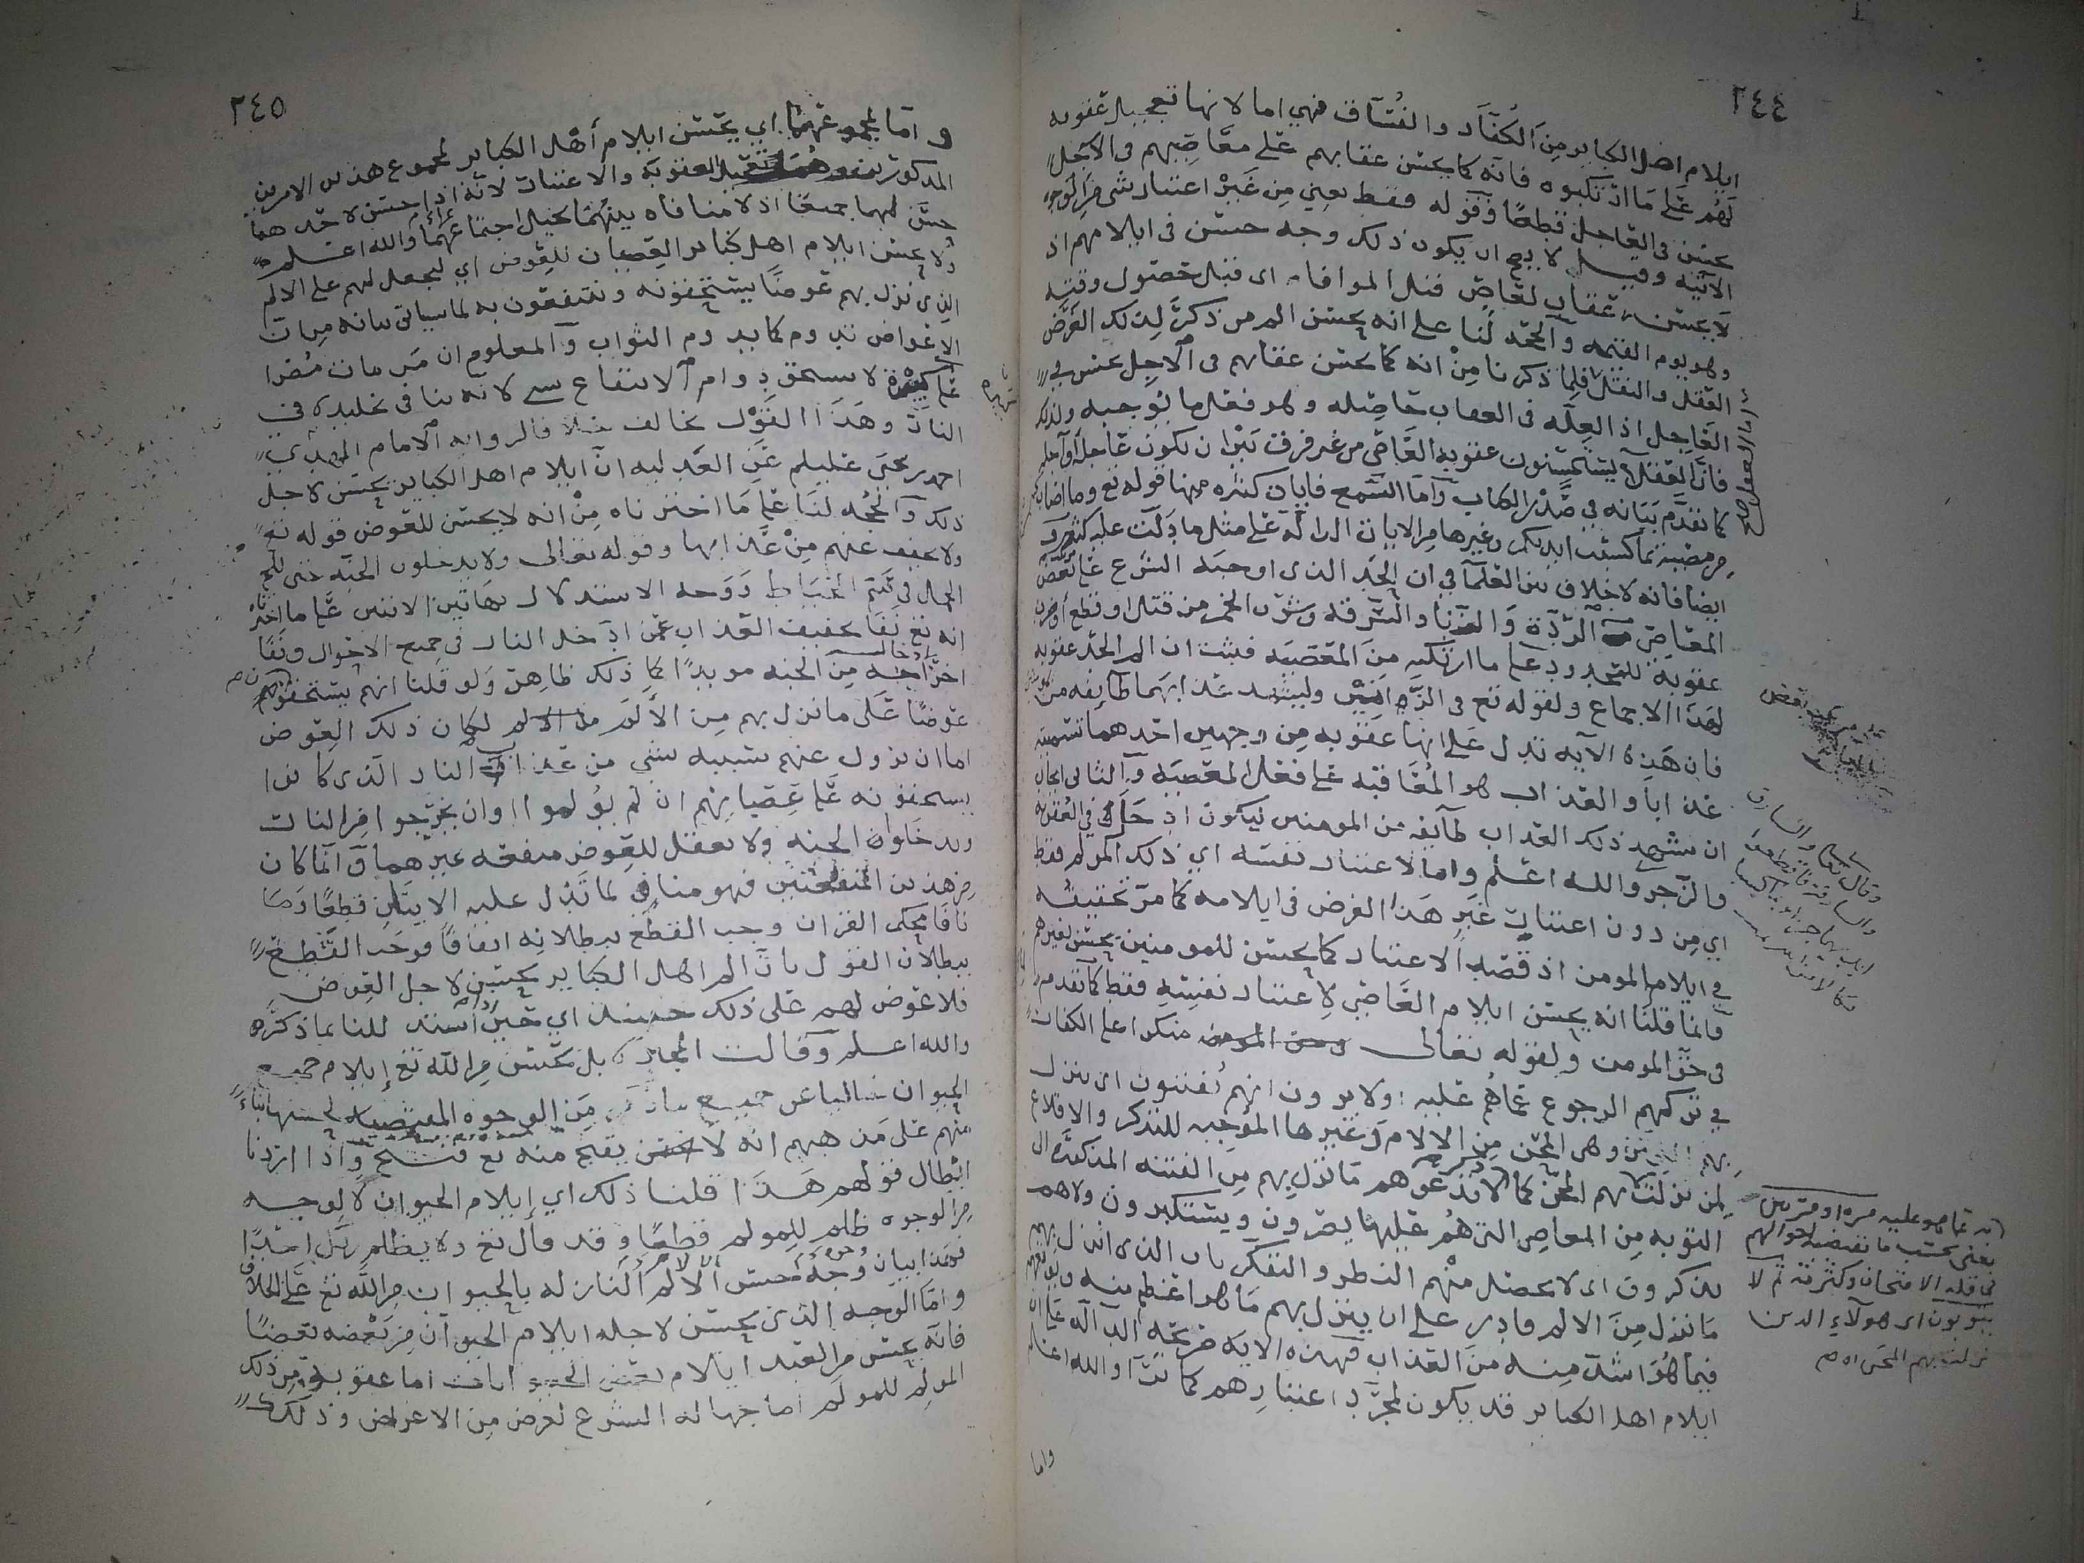 ٢٤٤
ايلام اهل الكباير من الكفار والفساق فهي اما لانها تعجيل عقوبه
لهم على ما ارتكبوه فانه كما يحسن عقابهم على معاصيهم في الآجل
يحسن في العاجل قطعا وقوله فقط يعني من غير اعتبار شي من الوجوه
الآتيه وقيل لا يصح ان يكون ذلك وجه حسن في ايلامهم اذ
لا يحسن عقاب لعاص قبل الموافاه اي قبل حصول وقته
وهو يوم القيمه والحجه لنا على انه يحسن الم من ذكر لذلك الغرض
العقل والنقل فلما ذكرنا من انه كما يحسن عقابهم في الآجل يحسن في
العاجل اذ العله في العقاب حاصله وهو فعل ما يوجبه ولذلك
فان العقلا يستحسنون عقوبه العاصي من غير فرق بين ان تكون عاجله او آجله
كما تقدم بيانه في صدر الكتاب واما السمع فايات كثيره منها قوله تع وما اصابكم
من مصيبة بما كسبت ايديكم وغيرها من الايات الداله على مثل ما دلت عليه
ايضا فانه لا خلاف بين العلما في ان الحد الذي اوجبه الشرع على بعض
المعاصي الردة والزنا والسرقه وشرب الخمر من قتل او قطع او ضرب
عقوبة للمحدود على ما ارتكبه من المعصيه فثبت ان الم الحد عقوبه
لهذا الاجماع ولقوله تع في الزانيين وليشهد عذابهما طايفه من
فان هذه الآيه تدل على انها عقوبه من وجهين احدهما تسميته
عذابا والعذاب هو المعاقبه على فعل المعصيه والثاني ايجاب
ان يشهد ذلك العذاب طايفه من المومنين ليكون ادخل في العقوبه
والزجر والله اعلم واما لاعتبار نفسه اي ذلك المولم فقط
اي من دون اعتبار غير هذا الغرض في ايلامه كما مر تحقيقه
في ايلام المومن اذ قصد الاعتبار كما يحسن للمومنين يحسن لغيرهم
وانما قلنا انه يحسن ايلام العاصي لاعتبار نفسه فقط كما تقدم
في حق المومن ولقوله تعالى منكرا على الكفار
في تركهم الرجوع عما هم عليه اولا يرون انهم يفتنون اي ينزل
بهم وهي المحن من الالام وغيرها الموجبه للتذكر والاقلاع
لمن نزلت بهم المحن كما لا تدعوهم ما نزل بهم من الفتنه المذكره الى
التوبه من المعاصي التي هم عليها يصرون ويستكبرون ولا هم
يذكرون اي لا يحصل منهم النظر والتفكر بان الذي انزل بهم
ما نزل من الالم قادر على ان ينزل بهم ما هو اعظم منه
فيما هو اشد منه من العذاب فهذه الايه صريحة الدلاله على ان
ايلام اهل الكباير قد يكون لمجرد اعتبارهم كما ترى والله اعلم
واما
وقال تعالى والسارق
والسارقة فاقطعوا
ايديهما جزاء بما كسبا
نكالا من الله
بد عاصوا عليه مره او مرتين
يعني بحسب ما تقتضيه احوالهم
في قله الامتحان وكثرته ثم لا
يتوبون اي هولآء الذين
نزلت بهم المحن اه ص
٢٤٥
واما لمجموعهما اي يحسن ايلام أهل الكباير لمجموع هذين الامرين
المذكورين وهما تعجيل العقوبه والاعتبار لانه اذا حسن لاحدهما
حسن لهما جميعا اذ لا منافاه بينهما تحيل اجتماعهما والله اعلم
ولا يحسن ايلام اهل كباير العصيان للعوض اي ليجعل لهم على الالم
الذي نزل بهم عوضا يستحقونه وينتفعون به لما سياتي بيانه من ان
الاعواض تدوم كما يدوم الثواب والمعلوم ان من مات مصرا
على كبيرة لا يستحق دوام الانتفاع بشي لانه ينافي تخليده في
النار وهذا القول يخالف قال رواه الامام المهدي
احمد بن يحيى عليلم عن العدليه ان ايلام اهل الكباير يحسن لاجل
ذلك والحجه لنا على ما اخترناه من انه لا يحسن للعوض قوله تع
ولا يخفف عنهم من عذابها وقوله تعالى ولا يدخلون الجنه حتى يلج
الجمل في سم الخياط ووجه الاستدلال بهاتين الايتين على ما اخترنا
انه تع نفا تخفيف العذاب عمن ادخل النار في جميع الاحوال ونفا
ادخاله من الجنه موبدا كما ذلك ظاهر ولو قلنا انهم يستحقون
عوضا على ما نزل بهم من الألم لكان ذلك العوض
اما ان يزول عنهم بسببه شي من عذاب النار الذي كانوا
يستحقونه على عصيانهم ان لم يولموا او ان يخرجوا من النار
ويدخلوا الجنه ولا يعقل للعوض منفعه غيرهما وانما كان
من هذين المنفعتين فهو مناف لما تدل عليه الايتان قطعا وما
نافا محكم القران وجب القطع ببطلانه اتفاقا فوجد القطع
ببطلان القول بان الم اهل الكباير يحسن لاجل العوض
فلا عوض لهم على ذلك حينئذ اي حين اذ استند للنا بما ذكره
والله اعلم وقالت المجبرة بل يحسن من الله تع إيلام جميع
الحيوان خاليا عن جميع من الوجوه المقتضيه لحسنها بناءً
منهم على مذهبهم انه لا يقبح منه تع قبيح واذا اردنا
ابطال قولهم هذا قلنا ذلك اي إيلام الحيوان لا لوجه
من الوجوه ظلم للمولم قطعا وقد قال تع ولا يظلم ربك احدا
فهذا بيان وجه حسن الالم النازله بالحيوان من الله تع على الخلاف
واما الوجه الذي يحسن لاجله ايلام الحيوان من بعضه بعضا
فانه يحسن من العبد ايلام بعض اما عقوبة من ذلك
المولم للمولم اباحها له الشرع لغرض من الاغراض وذلك